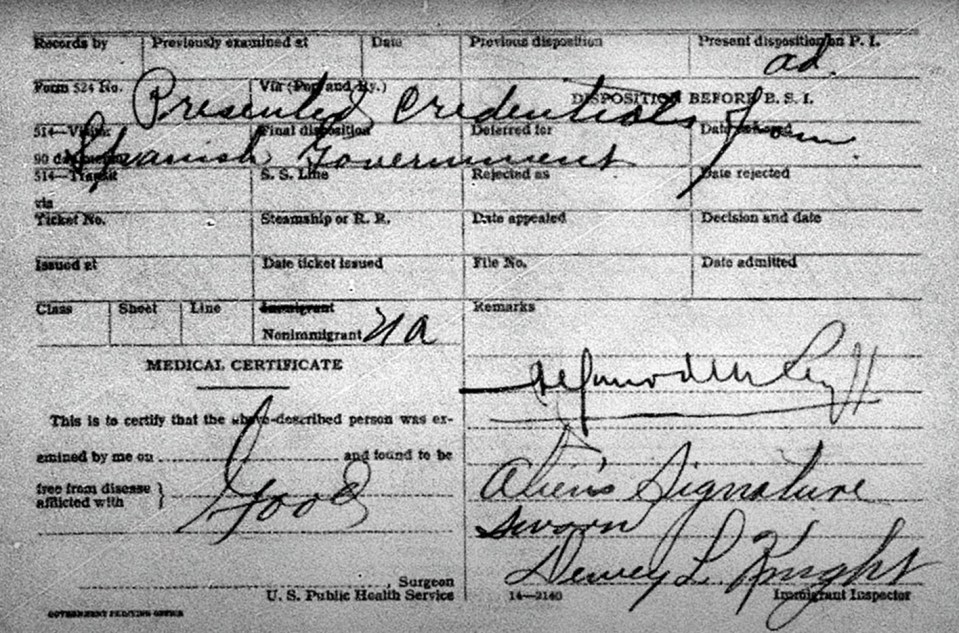 Records by Previously examined at Date Previous disposition Present disposition on P. I.
ad.
Form 524 No. Via (Port and Ry.) DISPOSITION BEFORE B. S. I.
Presented credentials from
514—Visitor Final disposition Deferred for Date
90 days
Spanish Government
514—Transit S. S. Line Rejected as Date rejected
via
Ticket No. Steamship or R. R. Date appealed Decision and date
Issued at Date ticket issued File No. Date admitted
Class Sheet Line Immigrant Remarks
Nonimmigrant
MEDICAL CERTIFICATE
This is to certify that the above-described person was ex-
amined by me on and found to be
free from disease
afflicted with
Good
Alien's Signature
Sworn
Dewey L. Knight
, Surgeon
U. S. Public Health Service 14—2140 Immigrant Inspector
GOVERNMENT PRINTING OFFICE